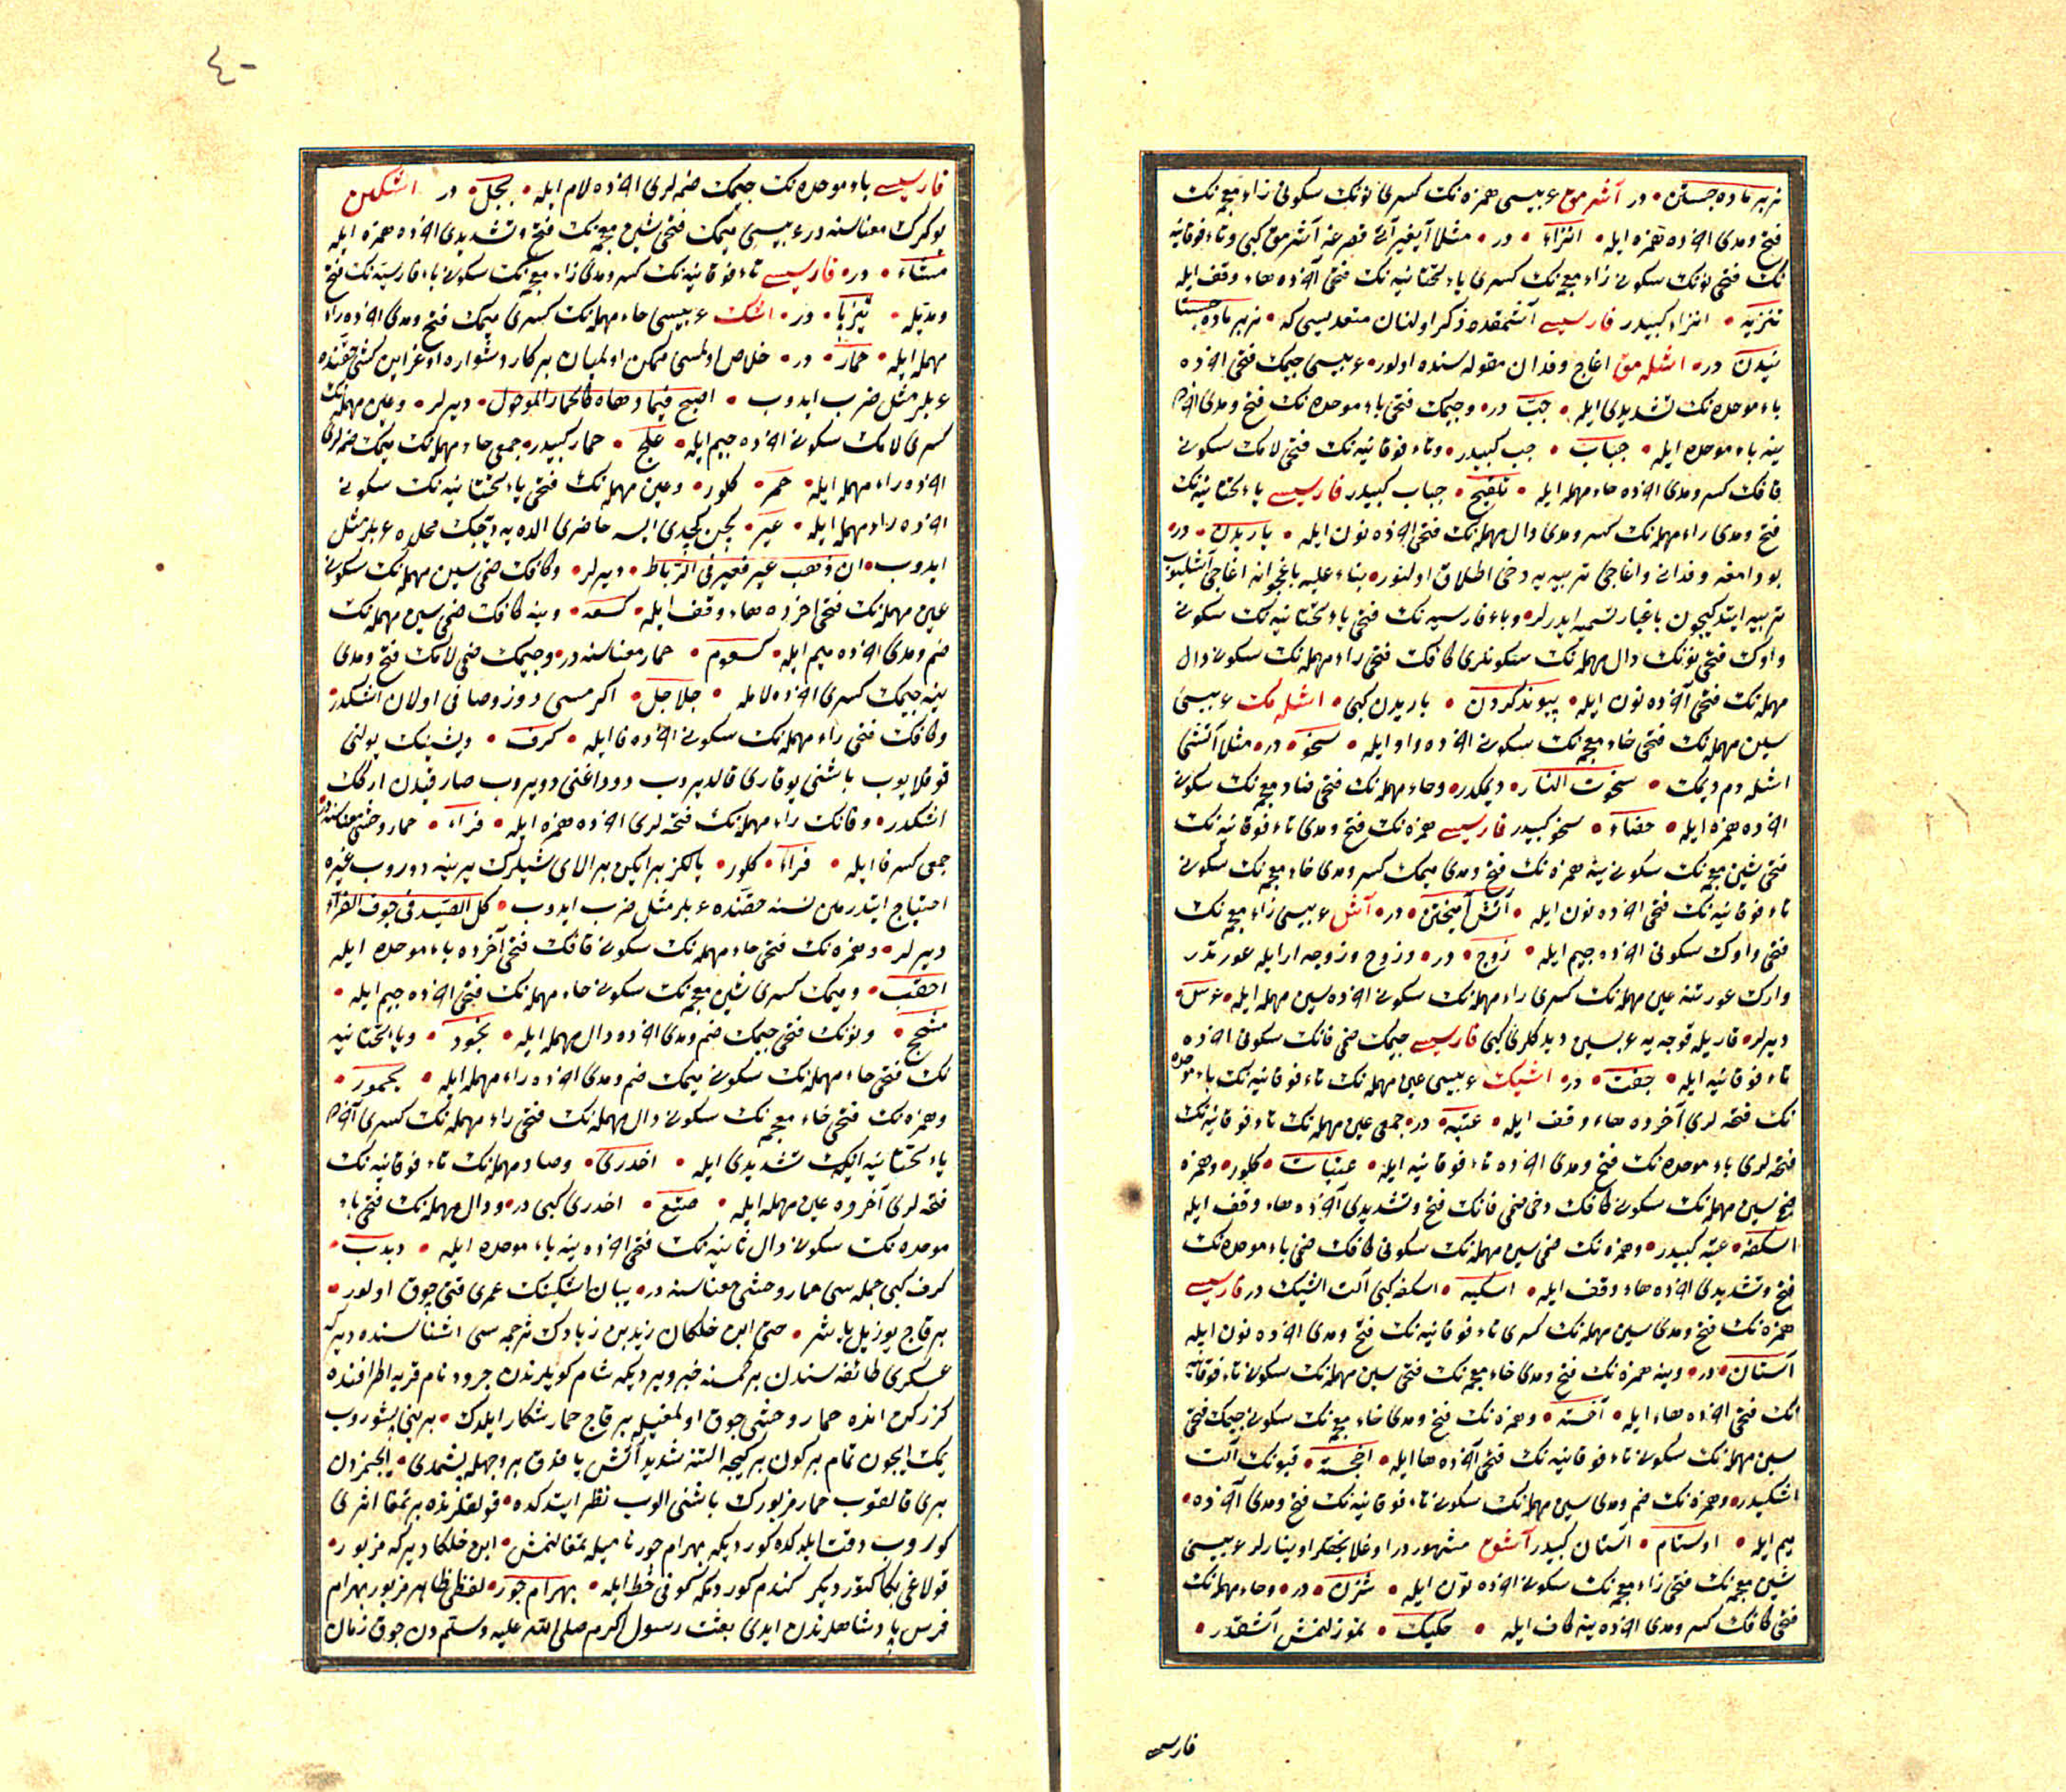 نر بر ماده جستن در آشرمق عربیسی همزه نك كسری نونك سكونی زاء معجمه نك
فتح ومدی آخرده همزه ایله انزاء در مثلا آیغیر آتی قصرغه آشرمق كبی وتاء فوقانیه
نك فتحی نونك سكونی زاء معجمه نك كسری یاء تحتانیه نك فتحی آخرده هاء وقف ایله
تنزیه انزاء كبیدر فارسیسی آشمقده ذكر اولنان متعدیسی كه نر بر ماده جستا
نیدن در اشله مق اغاج وفدان مقوله سنده اولور عربیسی جیمك فتحی آخرده
باء موحده نك تشدیدی ایله جبّ در وجیمك فتحی باء موحده نك فتح ومدی آخرده
ینه باء موحده ایله جباب جب كبیدر وتاء فوقانیه نك فتحی لامك سكونی
قافك كسر ومدی آخرده حاء مهمله ایله تلقیح جباب كبیدر فارسیسی یاء تحتانیه نك
فتح ومدی راء مهمله نك كسر ومدی دال مهمله نك فتحی آخرده نون ایله یاریدن در
بودامغه وفدانی واغاجی تربیه یه دخی اطلاق اولنور بناء علیه باغچوانه اغاجی آشلیوب
تربیه ایتدیكیچون باغیار تسمیه ایدرلر وباء فارسیه نك فتحی یاء تحتانیه نك سكونی
واوك فتحی نونك دال مهمله نك سكونلری كافك فتحی راء مهمله نك سكونی دال
مهمله نك فتحی آخرده نون ایله پیوند كردن یاریدن كبی اشله مك عربیسی
سین مهمله نك فتحی خاء معجمه نك سكونی آخرده واو ایله سخو در مثلا آتشی
اشله دم دیمك سخوت النار دیمكدر وحاء مهمله نك فتحی ضاد معجمه نك سكونی
آخرده همزه ایله حضاء سخو كبیدر فارسیسی همزه نك فتح ومدی تاء فوقانیه نك
فتحی شین معجمه نك سكونی ینه همزه نك فتح ومدی میمك كسر ومدی خاء معجمه نك سكونی
تاء فوقانیه نك فتحی آخرده نون ایله آتش آمیختن در آش عربیسی زاء معجمه نك
فتحی واوك سكونی آخرده جیم ایله زوج در وزوج وزوجه ار ایله عورتدر
وارك عورتنه عین مهمله نك كسری راء مهمله نك سكونی آخرده سین مهمله ایله عرس
دیرلر قاریله قوجه یه عربسین دیدكلری كبی فارسیسی جیمك ضمی فانك سكونی آخرده
تاء فوقانیه ایله جفت در اشیك عربیسی عین مهمله نك تاء فوقانیه نك باء موحده
نك فتحه لری آخرده هاء وقف ایله عتبه در جمعی عین مهمله نك تاء فوقانیه نك
فتحه لری باء موحده نك فتح ومدی آخرده تاء فوقانیه ایله عتبات كلور وهمزه
ضم سین مهمله نك سكونی كافك دخی ضمی فانك فتح وتشدیدی آخرده هاء وقف ایله
اسكفه عتبه كبیدر وهمزه نك ضمی سین مهمله نك سكونی كافك ضمی باء موحده نك
فتح وتشدیدی آخرده هاء وقف ایله اسكبه اسكفه كبی آلت اشیك در فارسیسی
همزه نك فتح ومدی سین مهمله نك كسری تاء فوقانیه نك فتح ومدی آخرده نون ایله
آستان در وینه همزه نك فتح ومدی خاء معجمه نك فتحی سین مهمله نك سكونی تاء فوقانیه
نك فتحی آخرده هاء ایله آخسته وهمزه نك فتح ومدی خاء معجمه نك سكونی جیمك فتحی
سین مهمله نك سكونی تاء فوقانیه نك فتحی آخرده ها ایله آخجسته قپونك آلت
اشیكیدر وهمزه نك ضم ومدی سین مهمله نك سكونی تاء فوقانیه نك فتح ومدی آخرده
میم ایله اوستام آستان كبیدر آشق مشهوردر اوغلانجقلر اوینارلر عربیسی
شین معجمه نك فتحی زاء معجمه نك سكونی آخرده نون ایله شزن در وحاء مهمله نك
فتحی كافك كسر ومدی آخرده ینه كاف ایله حكیك یوزلنمش آشقدر
فارسی
٤٠
فارسیسی باء موحده نك جیمك ضمه لری آخرده لام ایله بجل در اشكین
یوكرك معناسنه در عربیسی میمك فتحی شین معجمه نك فتح وتشدیدی آخرده همزه ایله
مشّاء در فارسیسی تاء فوقانیه نك كسر ومدی زاء معجمه نك سكونی باء فارسیه نك فتح
ومدیله تیزپا در اشك عربیسی حاء مهمله نك كسری میمك فتح ومدی آخرده راء
مهمله ایله حمار در خلاص اولمسی ممكن اولمیان بر كار دشواره اوغراین كشی حقنده
عربلر مثل ضرب ایدوب اصبح فیما دهاه كالحمار الموحول دیرلر وعین مهمله نك
كسری لامك سكونی آخرده جیم ایله علج حمار كبیدر جمعی حاء مهمله نك میمك ضمه لری
آخرده راء مهمله ایله حمر كلور وعین مهمله نك فتحی یاء تحتانیه نك سكونی
آخرده راء مهمله ایله عیر كچن كچدی ایسه حاضری الده یه دیجك محلده عربلر مثل
ایدوب ان ذهب عیر فعیر فی الرباط دیرلر وكافك ضمی سین مهمله نك سكونی
عین مهمله نك فتحی اخرده هاء وقف ایله كسعه وینه كافك ضمی سین مهمله نك
ضم ومدی آخرده میم ایله كسعوم حمار معناسنه در وجیمك ضمی لامك فتح ومدی
ینه جیمك كسری آخرده لامله جلاجل اكرمسی دوز وصافی اولان اشكدر
وكافك فتحی راء مهمله نك سكونی آخرده فا ایله كرف ودیشینك بولنی
قوقلایوب باشنی یوقاری قالدیروب دوداغنی دویروب صارقیدن اركك
اشكدر وفانك راء مهمله نك فتحه لری آخرده همزه ایله فراء حمار وحشی معناسنه در
جمعی كسر فا ایله فراء كلور یالكز بر ایكن بر الای شیلرك یرینه دوروب غیره
احتیاج ایتدرمین نسنه حقنده عربلر مثل ضرب ایدوب كل الصید فی جوف الفراء
دیرلر وهمزه نك فتحی حاء مهمله نك سكونی قافك فتحی آخرده باء موحده ایله
احقب ومیمك كسری شین معجمه نك سكونی حاء مهمله نك فتحی آخرده جیم ایله
مشحج ونونك فتحی جیمك ضم ومدی آخرده دال مهمله ایله نجود ویاء تحتانیه
نك فتحی حاء مهمله نك سكونی میمك ضم ومدی آخرده راء مهمله ایله یحمور
وهمزه نك فتحی خاء معجمه نك سكونی دال مهمله نك فتحی راء مهمله نك كسری آخرده
یاء تحتانیه نك تشدیدی ایله اخدری وصاد مهمله نك تاء فوقانیه نك
فتحه لری آخرده عین مهمله ایله صتع اخدری كبی در ودال مهمله نك فتحی باء
موحده نك سكونی دال ثانیه نك فتحی آخرده ینه باء موحده ایله دبدب
كرف كبی جمله سی حمار وحشی معناسنه در یبان اشكینك عمری قتی چوق اولور
بر قاج یوز ییل یاشر حتی ابن خلكان یزید بن زیادك ترجمه سی اشناسنده دیر كه
عسكری طائفه سندن بر كمسنه خبر ویردیكه شام كویلرندن جرود نام قریه اطرافنده
كزركن انده حمار وحشی چوق اولمغیله بر قاج حمار شكار ایلدك برینی پشوروب
یمك ایچون تمام بر كون بر كیجه التنه شدید آتش یاقدق بر وجهله پشمدی ایچمزدن
بری قالقوب حمار مزبورك باشنی الوب نظر ایتدكده قولقلرنده بر تمغا اثری
كوروب دقت ایلدكده كوردیكه بهرام جور نامیله تمغالنمش ابن خلكان دیر كه مزبور
قولاغی بكا كتوردیلر كندم كوردمكه كوفی خط ایله بهرام جور لفظی ظاهر مزبور بهرام
فرس پادشاهلرندن ایدی بعثت رسول اكرم صلی الله علیه وسلم دن چوق زمان